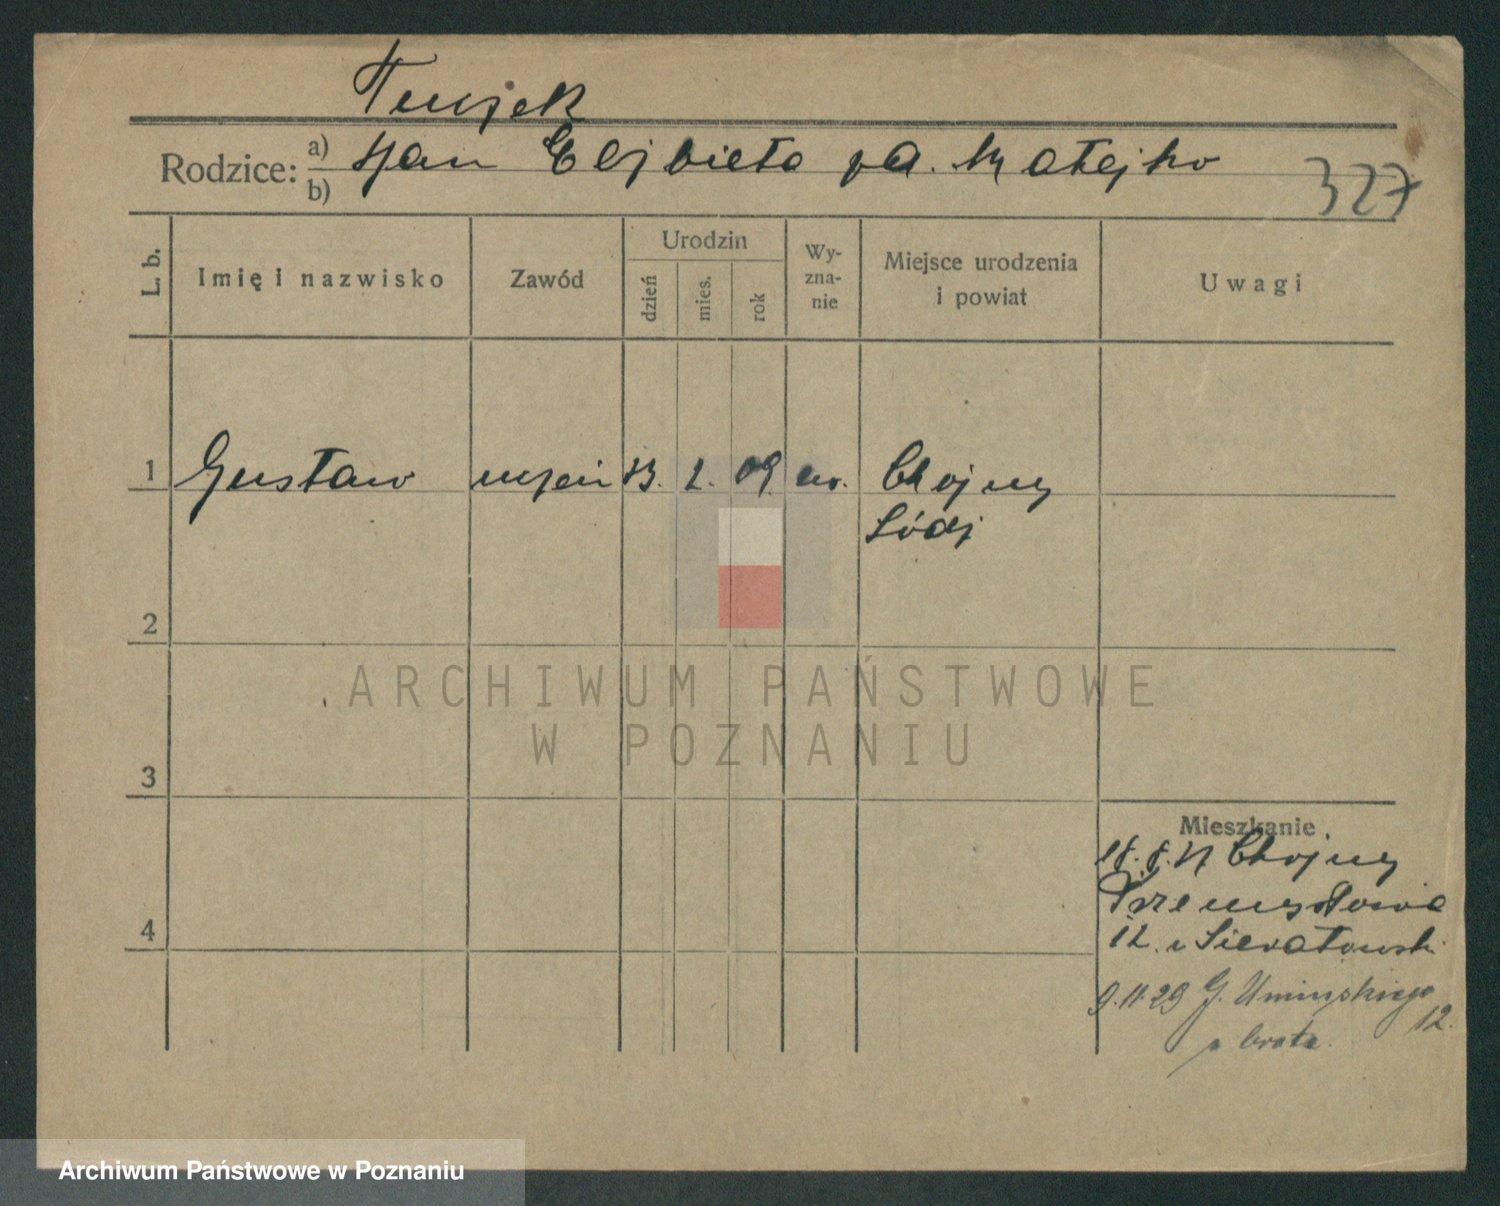 Tuczek
Rodzice: a) b) Jan Elżbieta zd. Matejko
327
L. b. Imię i nazwisko Zawód Urodzin dzień mies. rok Wy-zna-nie Miejsce urodzenia i powiat Uwagi
1 Gustaw uczeń 13. 2. 09. ew. Chojny
Łódź
2
ARCHIWUM PAŃSTWOWE
W POZNANIU
3
Mieszkanie
18. 8. Chojny
4
12. u
9.11.29 G. Umińskiego
12.
u brata.
Archiwum Państwowe w Poznaniu